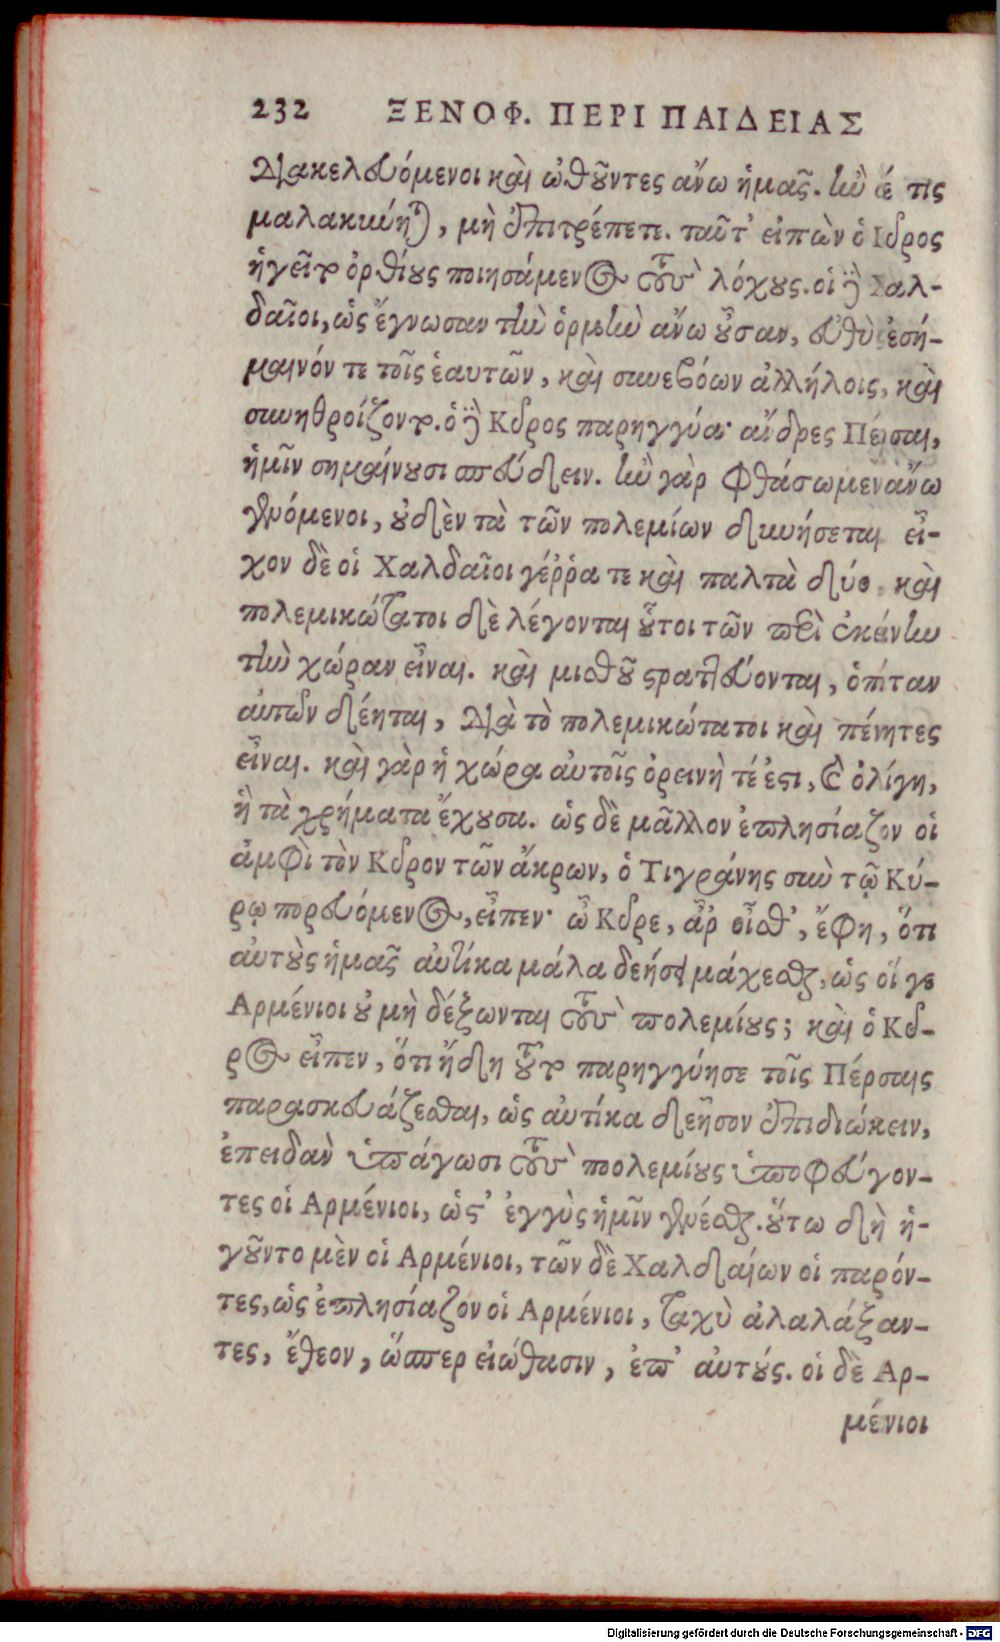 232 ΞΕΝΟΦ. ΠΕΡΙ ΠΑΙΔΕΙΑΣ
διακελευόμενοι καὶ ὠθοῦντες ἄνω ἡμᾶς. ἢν δέ τις
μαλακύνηται, μὴ ἐπιτρέπετε. ταῦτ' εἰπὼν ὁ Κῦρος
ἡγεῖτο ὀρθίους ποιησάμενος τοὺς λόχους. οἱ δὲ Χαλ-
δαῖοι, ὡς ἔγνωσαν τὴν ὁρμὴν ἄνω οὖσαν, εὐθὺς ἐσή-
μαινόν τε τοῖς ἑαυτῶν, καὶ συνεβόων ἀλλήλοις, καὶ
συνηθροίζοντο. ὁ δὲ Κῦρος παρηγγύα· ἄνδρες Πέρσαι,
ἡμῖν σημαίνουσι σπεύδειν. ἢν γὰρ φθάσωμεν ἄνω
γενόμενοι, οὐδὲν τὰ τῶν πολεμίων δυνήσεται εἶ-
χον δὲ οἱ Χαλδαῖοι γέῤῥα τε καὶ παλτὰ δύο. καὶ
πολεμικώτατοι δὲ λέγονται οὗτοι τῶν περὶ ἐκείνην
τὴν χώραν εἶναι. καὶ μισθοῦ στρατεύονται, ὁπόταν
αὐτῶν δέηται, διὰ τὸ πολεμικώτατοι καὶ πένητες
εἶναι. καὶ γὰρ ἡ χώρα αὐτοῖς ὀρεινὴ τέ ἐστι, καὶ ὀλίγη,
ἡ τὰ χρήματα ἔχουσα. ὡς δὲ μᾶλλον ἐπλησίαζον οἱ
ἀμφὶ τὸν Κῦρον τῶν ἄκρων, ὁ Τιγράνης σὺν τῷ Κύ-
ρῳ πορευόμενος, εἶπεν· ὦ Κῦρε, ἆρ' οἶσθ', ἔφη, ὅτι
αὐτοὺς ἡμᾶς αὐτίκα μάλα δεήσει μάχεσθαι, ὡς οἵ γε
Αρμένιοι οὐ μὴ δέξωνται τοὺς πολεμίους; καὶ ὁ Κῦ-
ρος εἶπεν, ὅτι ἤδη τοῦτο παρηγγύησε τοῖς Πέρσαις
παρασκευάζεσθαι, ὡς αὐτίκα δεῆσον ἐπιδιώκειν,
ἐπειδὰν ὑπάγωσι τοὺς πολεμίους ὑποφεύγον-
τες οἱ Αρμένιοι, ὥστ' ἐγγὺς ἡμῖν γενέσθαι. οὕτω δὴ ἡ-
γοῦντο μὲν οἱ Αρμένιοι, τῶν δὲ Χαλδαίων οἱ παρόν-
τες, ὡς ἐπλησίαζον οἱ Αρμένιοι, ταχὺ ἀλαλάξαν-
τες, ἔθεον, ὥσπερ εἰώθασιν, ἐπ' αὐτούς. οἱ δὲ Αρ-
μένιοι
Digitalisierung gefördert durch die Deutsche Forschungsgemeinschaft - DFG